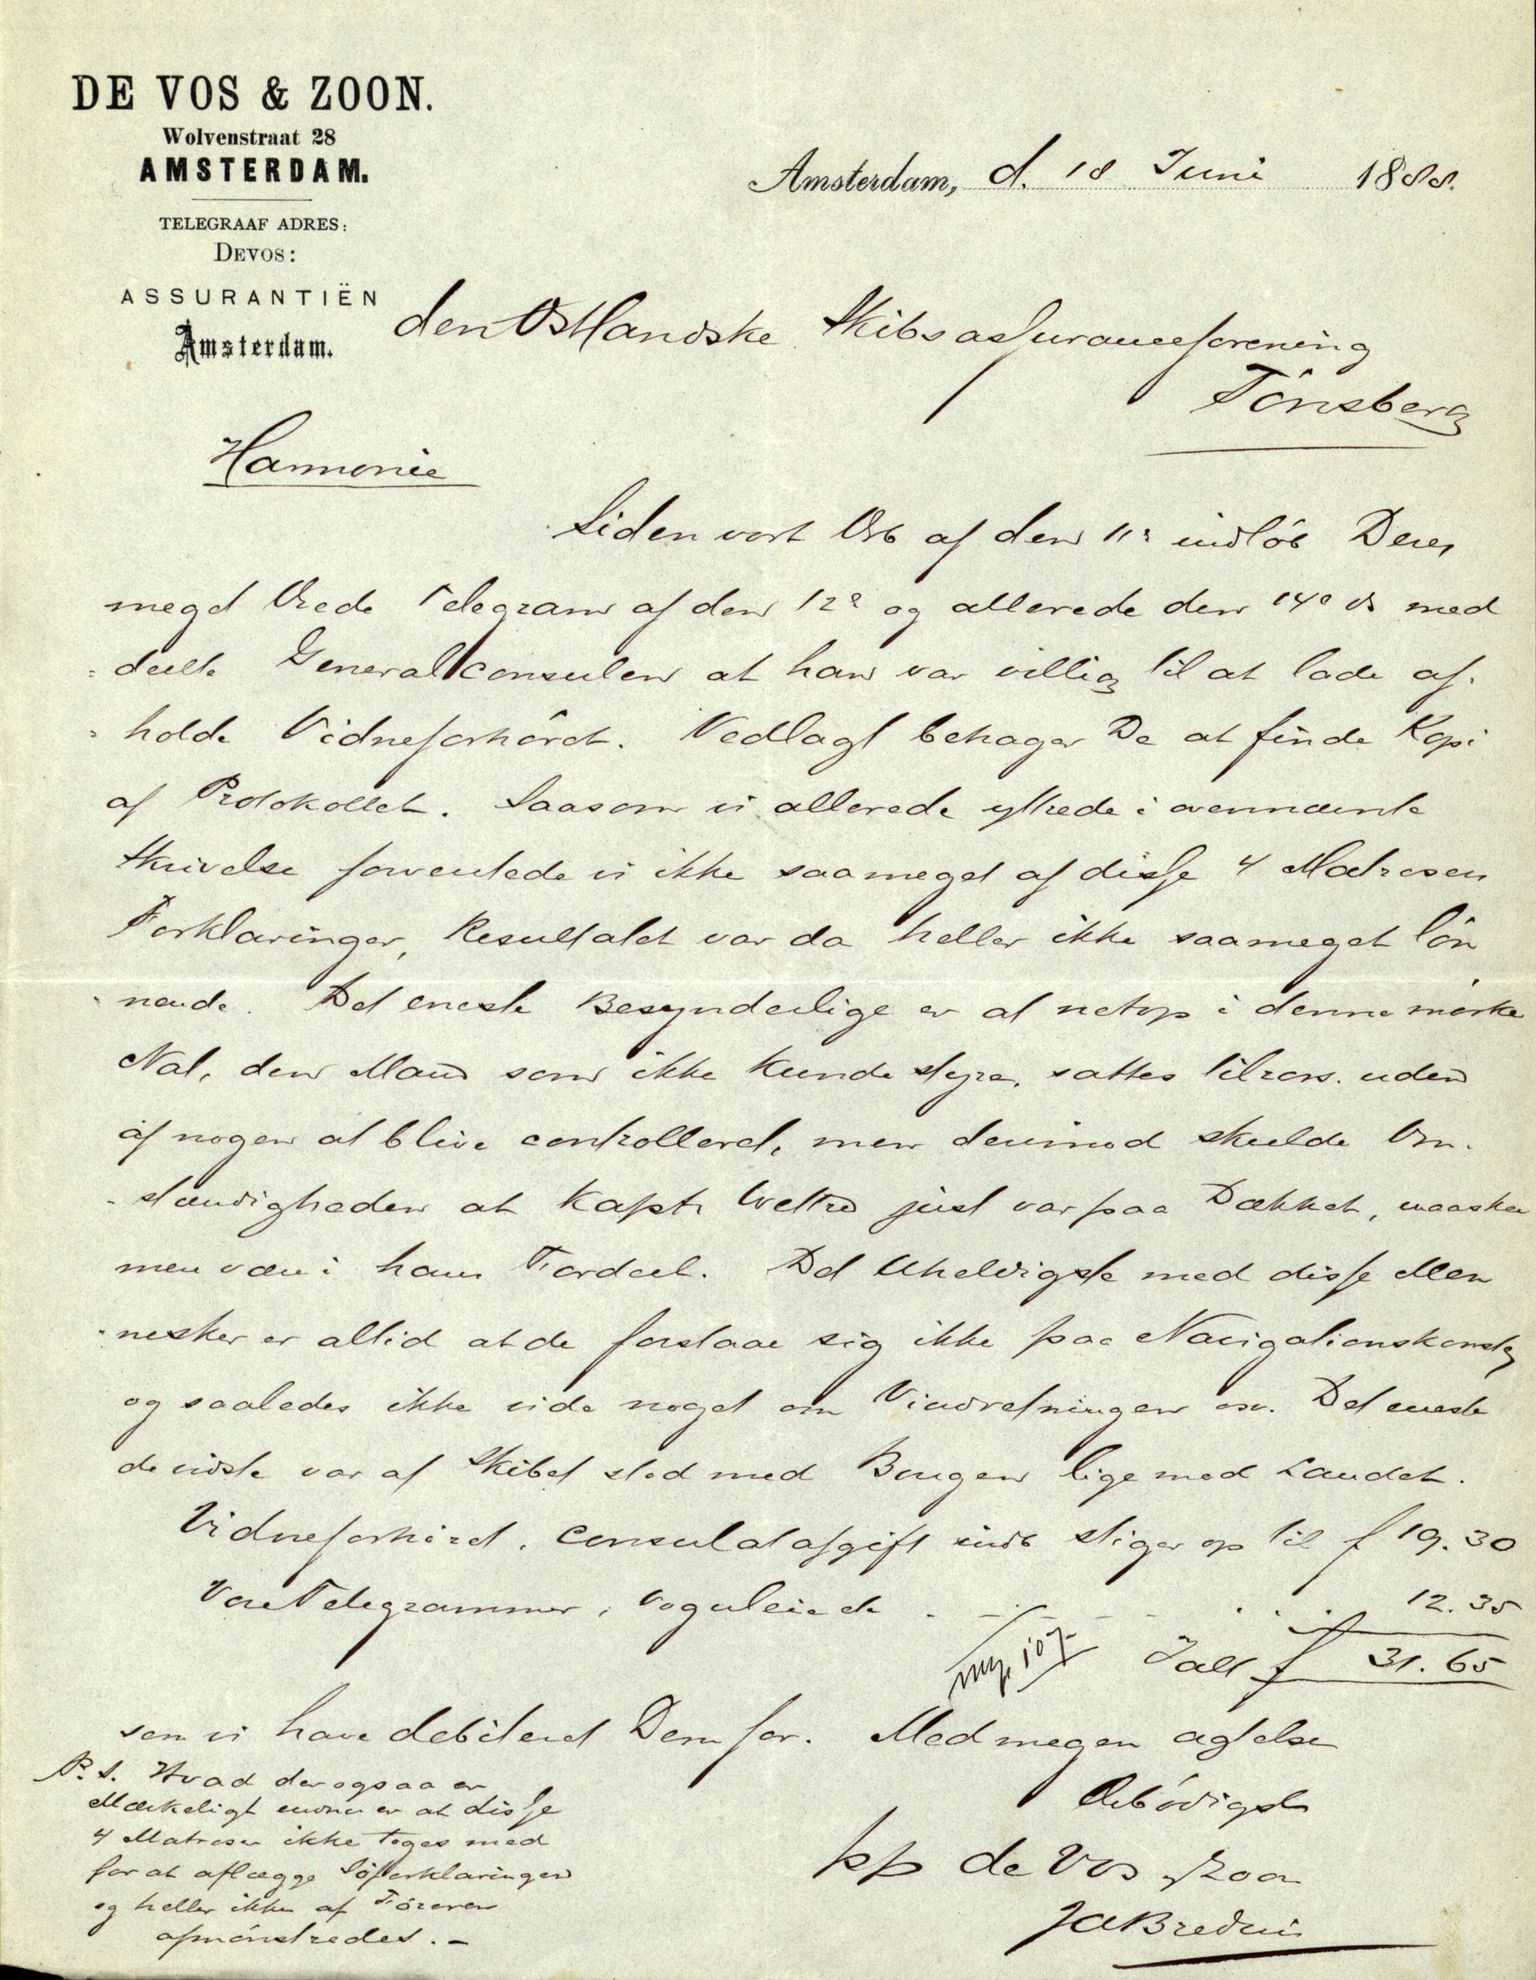 DE VOS & ZOON.
Wolvenstraat 28
AMSTERDAM.
TELEGRAAF ADRES:
DEVOS:
ASSURANTIËN
Amsterdam.
Amsterdam, d. 18 Juni 1888.
den Ostlandske Skibsassuranceforening
Tönsberg
Harmonie
Siden vort Brev af den 11e indlöb Deres
meget ærede Telegram af den 12e og allerede den 14e ds med
deelte Generalconsulen at han var villig til at lade af-
holde Vidneforhöret. Vedlagt behager De at finde Kopi
af Protokollet. Saasom vi allerede yttrede i ovennævnte
Skrivelse forventede vi ikke saameget af disse 4 Matrosen
Forklaringer, Resultatet var da heller ikke saameget lön
nende. Det eneste Besynderlige er at netop i denne mörke
Nat, den Mand som ikke kunde styre, sattes tilrors. uden
af nogen at blive controlleret, men derimod skulde Om-
stændigheden at Kaptn just var paa Dækket, maaske
men være i hans Fordeel. Det Uheldigste med disse Men
nesker er altid at de forstaae sig ikke paa Navigationskonsten
og saaledes ikke vide noget om Vindretningen osv. Det eneste
de vidste var at Skibet stod med Bougen lige mod Landet.
Vidneforhöret, Consulatafgift stiger op til f 19.30
Vore Telegrammer, Vognleie de 12.35
Ialt f 31.65
som vi have debiteret Dem for. Med megen agtelse
Ærbödigst
pp de Vos & Zoon
P.S. Hvad der ogsaa er
Mærkeligt endnu er at disse
4 Matroser ikke toges med
for at aflægge Söforklaringen
og heller ikke af Föreren
afmönstredes. -